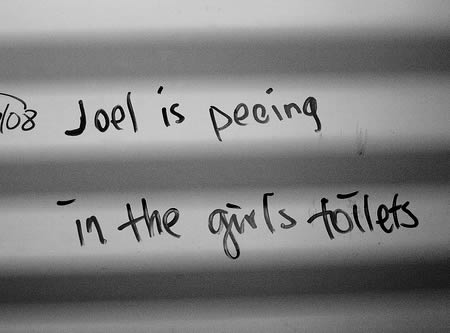 /08 Joel is peeing
in the girls toilets